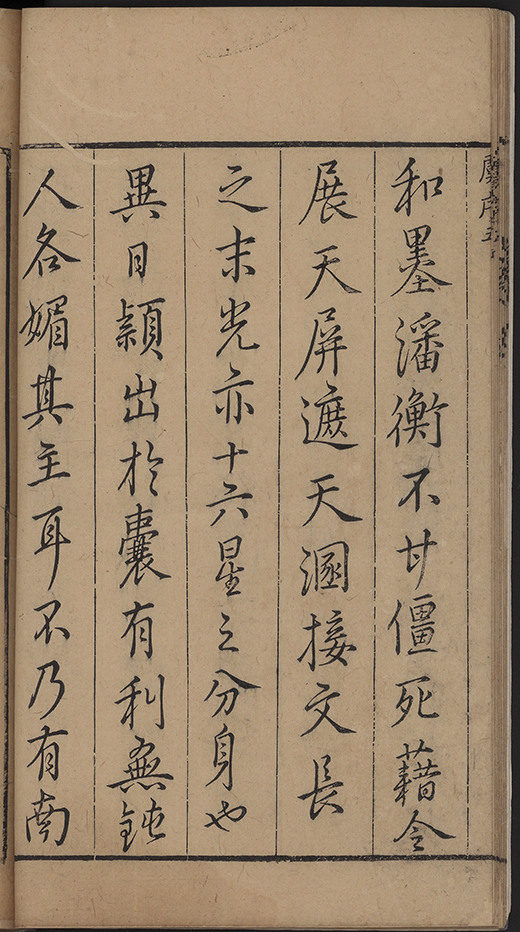 和墨潘衡不甘僵死藉令
展天屏遮天溷接文長
之末光亦十六星之分身也
異日穎出於囊有利無鈍
人各媚其主耳不乃有南